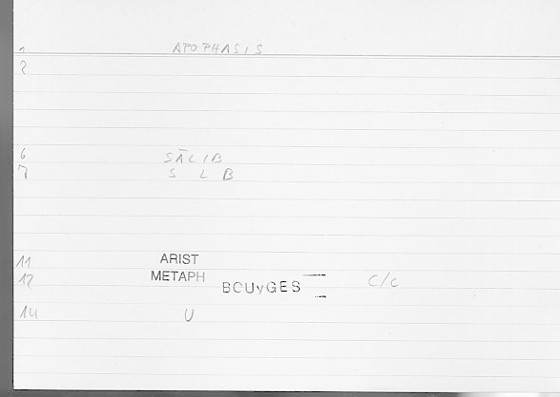 1 APOPHASIS
2
6 SĀLIB
7 S L B
11 ARIST
12 METAPH BOUYGES C/C
14 U